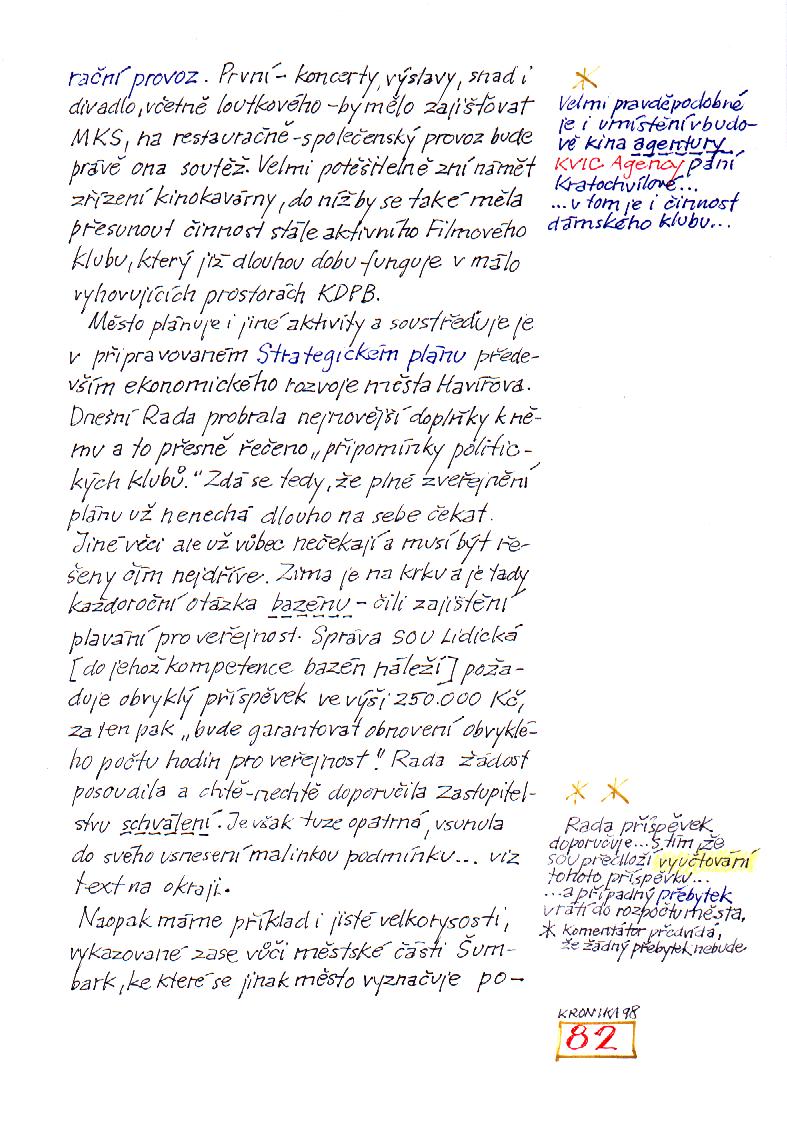 rační provoz. První - koncerty, výslavy, snad i
divadlo, včetně loutkového - by mělo zajišťovat
MKS, na restauračně-společenský provoz bude
právě ona soutěž. Velmi potěšitelně zní námět
zřízení kinokavárny, do níž by se také měla
přesunout činnost stále aktivního Filmového
klubu, který již dlouhou dobu funguje v málo
vyhovujících prostorách KDPB.
Město plánuje i jiné aktivity a soustřeďuje je
v připravovaném Strategickém plánu přede-
vším ekonomického rozvoje města Havířova.
Dnešní Rada probrala nejnovější doplňky k ně-
mu a to přesně řečeno „připomínky politic-
kých klubů." Zdá se tedy, že plné zveřejnění
plánu už nenechá dlouho na sebe čekat.
Jiné věci ale už vůbec nečekají a musí být ře-
šeny čím nejdříve. Zima je na krku a je tady
každoroční otázka bazénu - čili zajištění
plavání pro veřejnost. Správa SOU Lidická
[do jehož kompetence bazén náleží] poža-
duje obvyklý příspěvek ve výši 250.000 Kč,
za ten pak „bude garantovat obnovení obvyklé-
ho počtu hodin pro veřejnost!" Rada žádost
posoudila a chtě-nechtě doporučila Zastupitel-
stvu schválení. Je však tuze opatrná, vsunula
do svého usnesení malinkou podmínku... viz
text na okraji.
Naopak máme příklad i jisté velkorysosti,
vykazované zase vůči městské části Šum-
bark, ke které se jinak město vyznačuje po-
*
Velmi pravděpodobné
je i umístění v budo-
vě kina agentury
KVIC Agency paní
Kratochvílové...
...v tom je i činnost
dámského klubu...
* *
Rada příspěvek
doporučuje... s tím že
SOU předloží vyúčtování
tohoto příspěvku...
...a případný přebytek
vrátí do rozpočtu města.
* komentátor předvídá,
že žádný přebytek nebude
KRONIKA 98
82